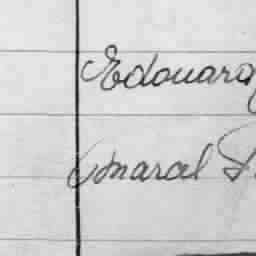 Edouard
Maral